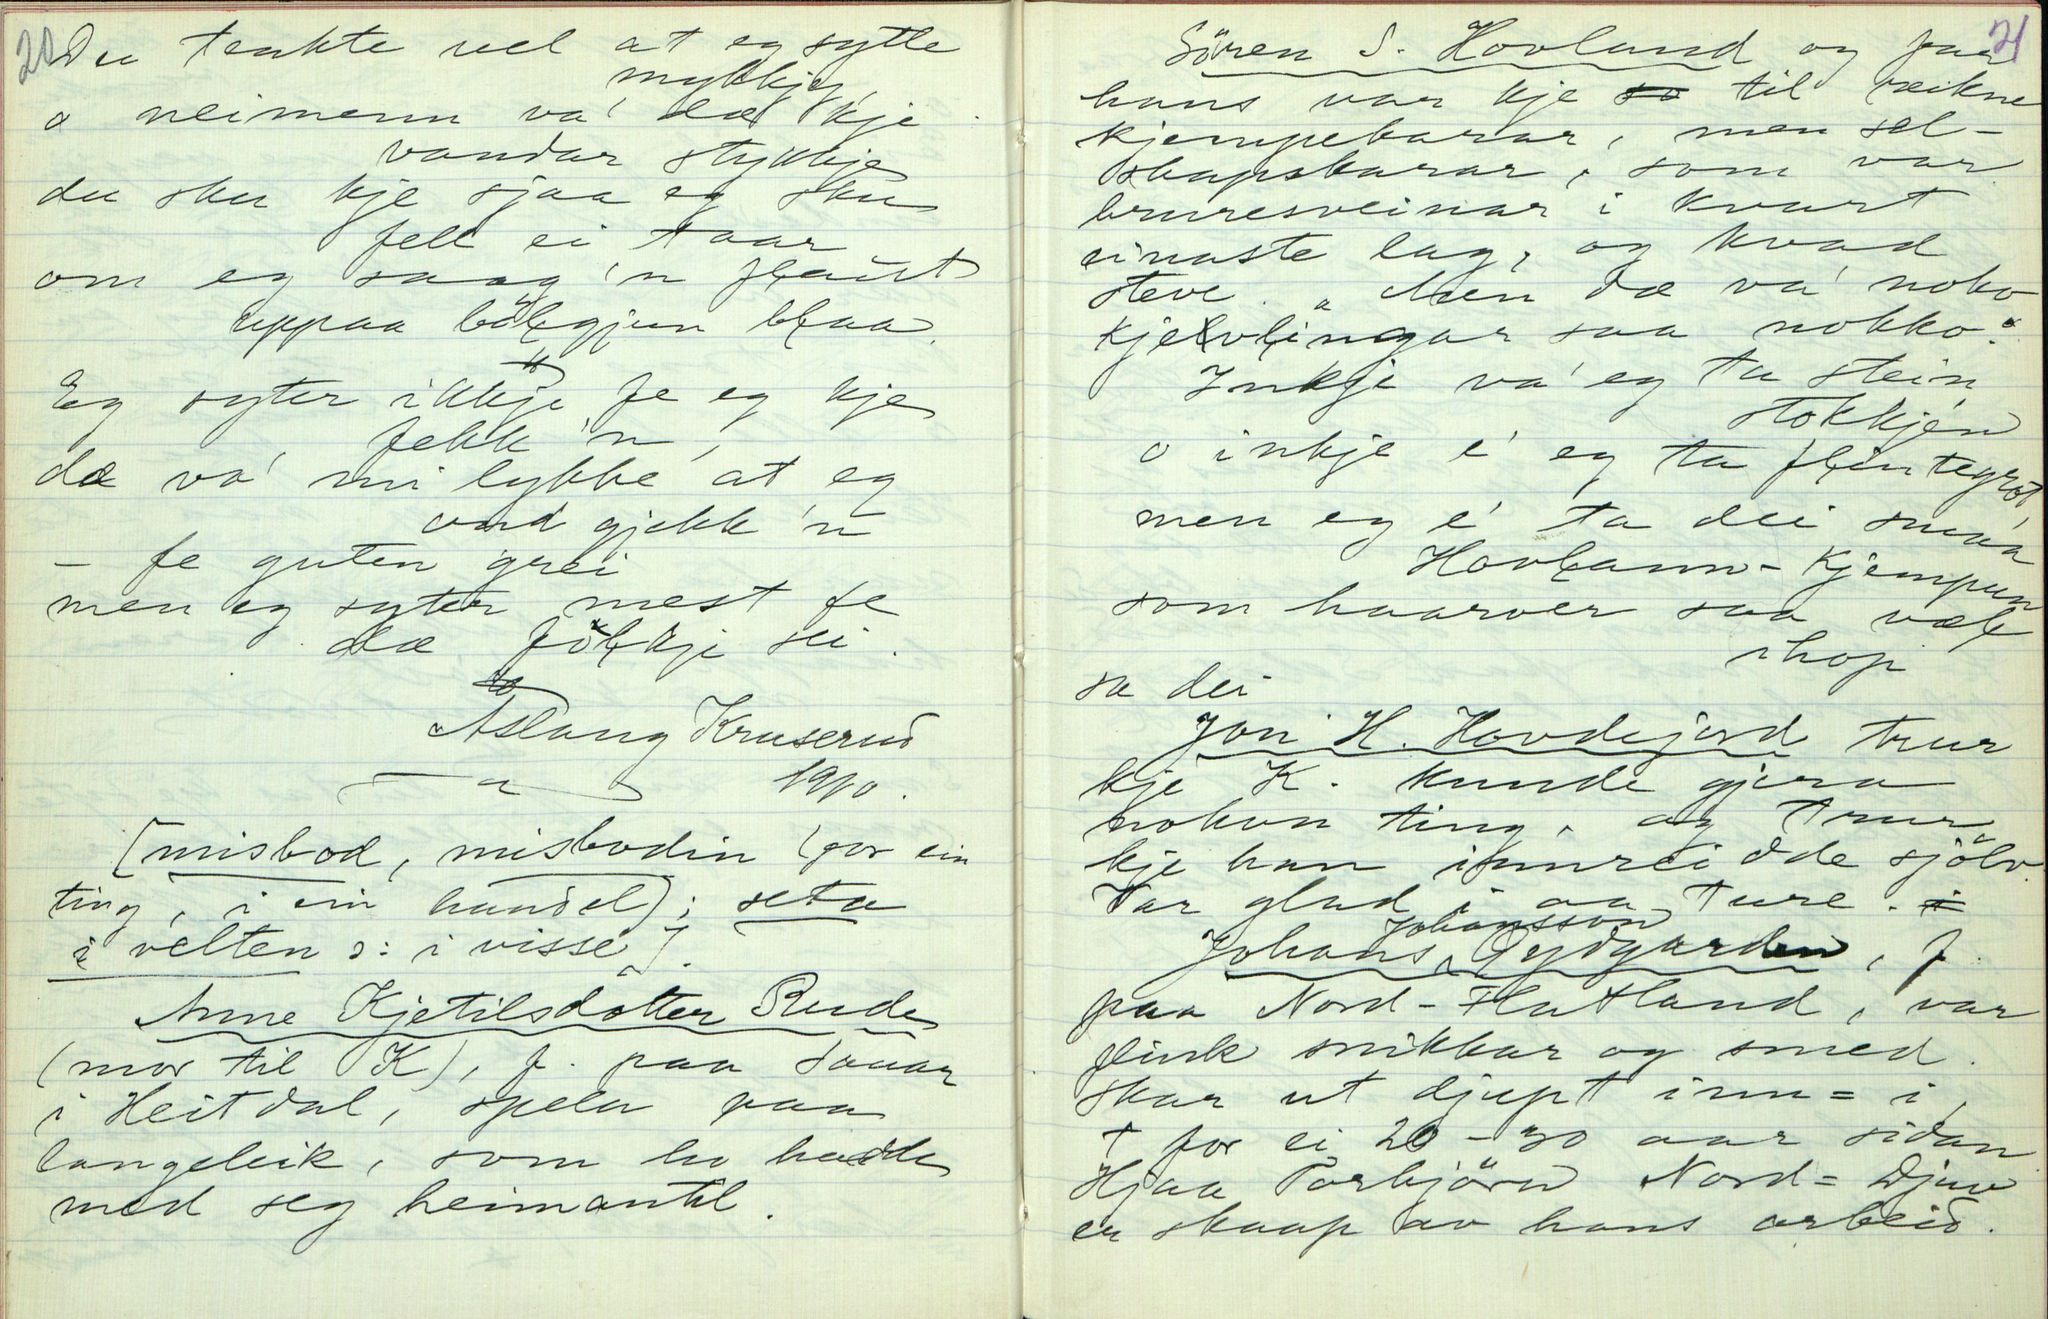 20
Du tenkte vel at eg sytte
mykkje,
o neimenn va' dæ kje
vandar stykkje
du sku kje sjaa eg sku
fell ei taar
om eg saag 'n flaut
uppaa bölgjun blaa.
Eg syter ikkje fe eg kje
fekk 'n,
dæ va' mi lykke at eg
undgjekk 'n
– fe guten grei
men eg syter mest fe
dæ fölkje sei.
Aslaug Kruserud
1910.
[misbod, misbodin (for ein
ting, i ein handel); seta
i velten ɔ: i visse].
Anne Kjetilsdotter Rude
(mor til K), f. paa Sauar
i Heitdal, spela paa
langeleik, som ho hadde
med seg heimantil.
21
Sören S. Hovland og far
hans var kje so til reikne
kjempekarar, men sel-
skapskarar, som var
bruresveinar i kvart
einaste lag, og kvad
steve. "Men dæ va' noko
kjelvlingar saa nokko."
Inkje va' eg ta stein
stokkjen
o inkje e' eg ta flintegrot
men eg e' ta dei smaa
Hovlann-Kjempun
som haarver saa væl
ihop
sa dei
Jon H. Hovdejord trur
kje K. kunde gjera
nokon ting, og trur
kje han innreidde sjölv.
Var glad i aa ture.
Johansson
Johans Öygarden, f.
paa Nord-Flatland, var
flink snikkar og smed.
Skar ut djupt inn= i
† for ei 20–30 aar sidan
Hjaa Torbjörn Nord=Djuv
er skaap av hans arbeid.